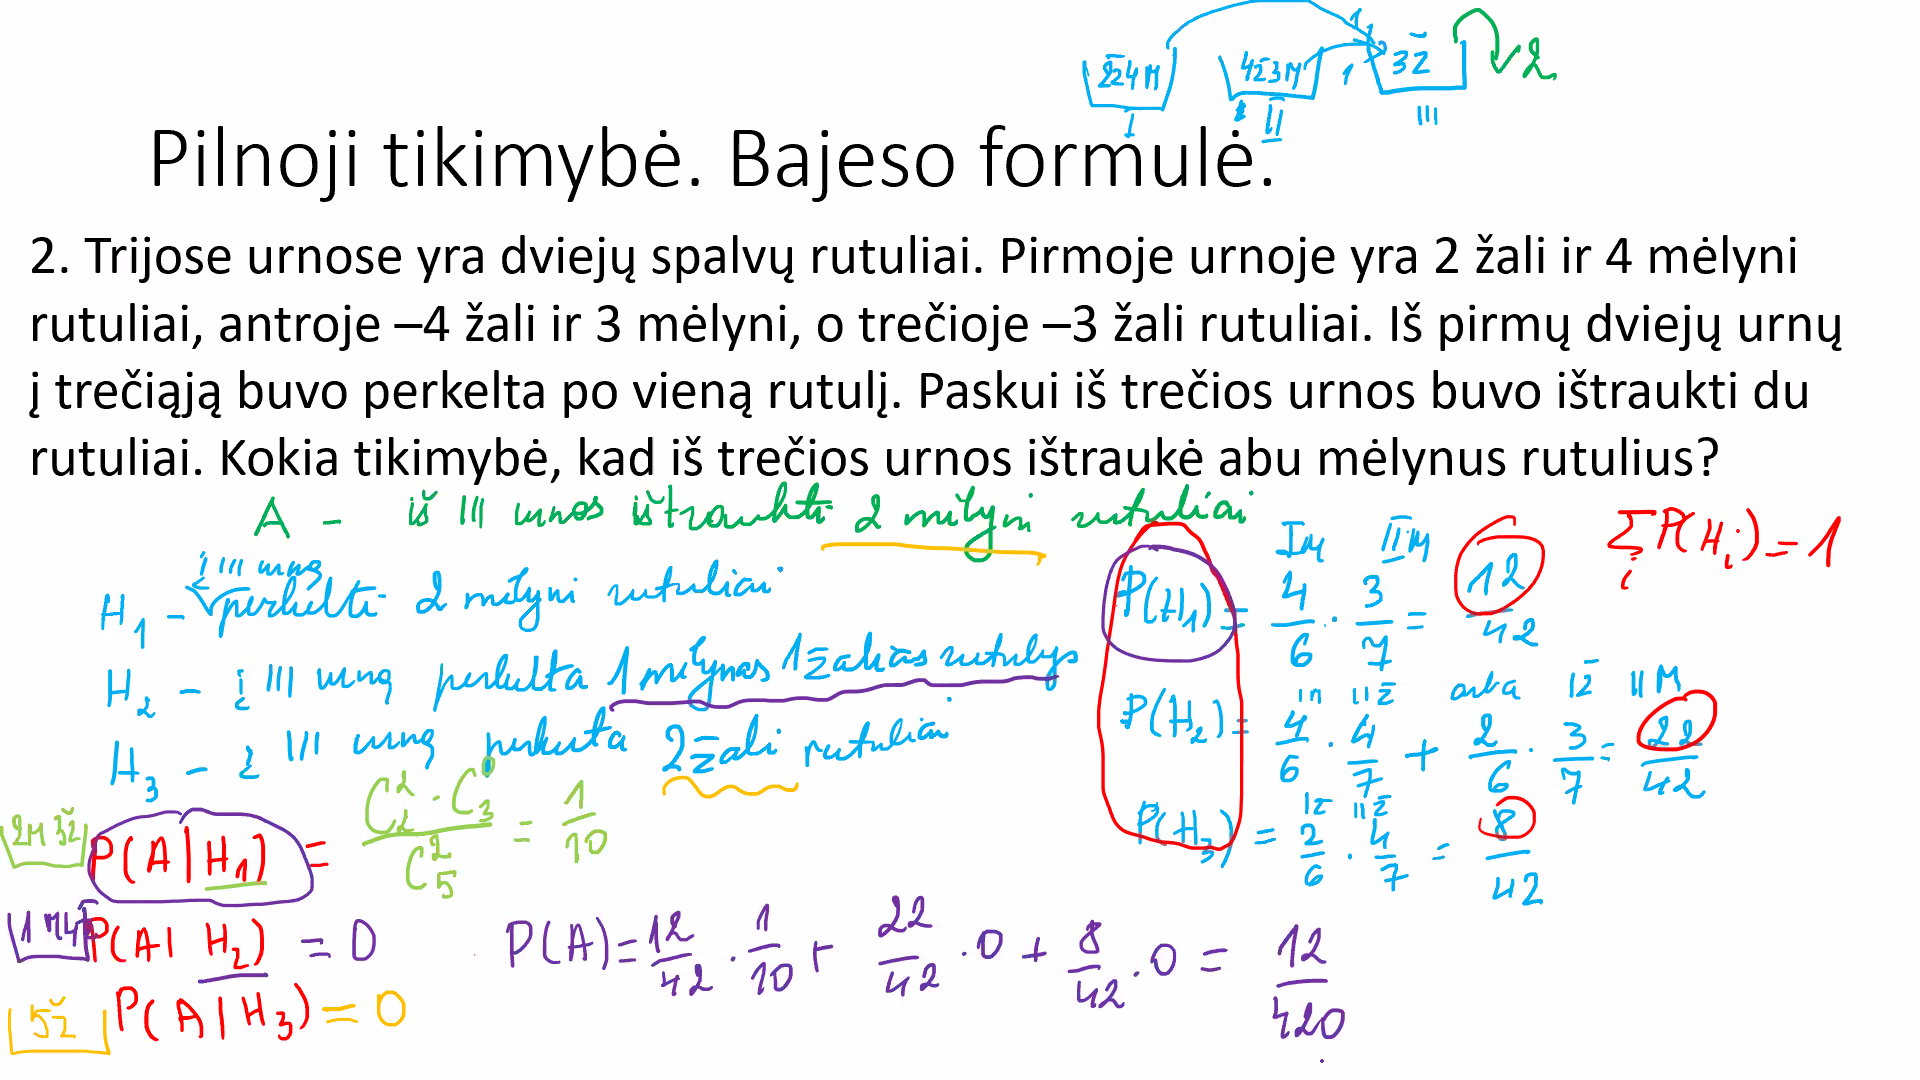 2ž4M 4ž3M 1 1 3ž 2
I II III
Pilnoji tikimybė. Bajeso formulė.
2. Trijose urnose yra dviejų spalvų rutuliai. Pirmoje urnoje yra 2 žali ir 4 mėlyni
rutuliai, antroje –4 žali ir 3 mėlyni, o trečioje –3 žali rutuliai. Iš pirmų dviejų urnų
į trečiąją buvo perkelta po vieną rutulį. Paskui iš trečios urnos buvo ištraukti du
rutuliai. Kokia tikimybė, kad iš trečios urnos ištraukė abu mėlynus rutulius?
A - iš III urnos ištraukti 2 mėlyni rutuliai
H₁ - į III urną perkelti 2 mėlyni rutuliai
H₂ - į III urną perkelta 1 mėlynas 1 žalias rutulys
H₃ - į III urną perkelta 2 žali rutuliai
IM IIM
P(H₁) = 4/6 · 3/7 = 12/42
Σᵢ P(Hᵢ) = 1
IM IIž arba Iž IIM
P(H₂) = 4/6 · 4/7 + 2/6 · 3/7 = 22/42
Iž IIž
P(H₃) = 2/6 · 4/7 = 8/42
2M 3ž P(A|H₁) = C₂² · C₃⁰ / C₅² = 1/10
1M4ž P(A|H₂) = 0
5ž P(A|H₃) = 0
P(A) = 12/42 · 1/10 + 22/42 · 0 + 8/42 · 0 = 12/420